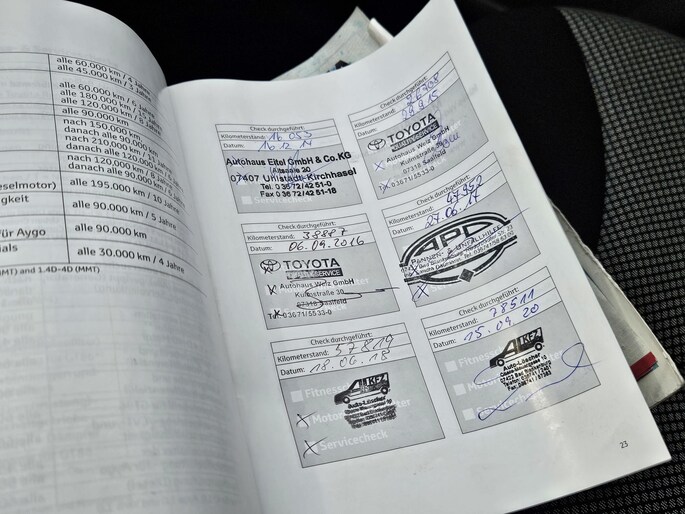 alle 60.000 km / 4 Jahre
alle 45.000 km / 3 Jahre
alle 60.000 km / 6 Jahre
alle 180.000 km /
alle 120.000 km /
alle 90.000 km
nach 150.000 km
danach alle 90.000
nach 210.000 km
danach alle 120.000
nach 120.000 km / 8
danach alle 90.000 km /
eselmotor)
alle 195.000 km / 10 Jahre
igkeit
alle 90.000 km / 5 Jahre
für Aygo
alle 90.000 km
ials
alle 30.000 km / 4 Jahre
MT) and 1.4D-4D (MMT)
Check durchgeführt:
Kilometerstand: 16 053
Datum: 16.12.14
Autohaus Eitel GmbH & Co.KG
Alte
07407 Uhlstädt-Kirchhasel
Tel. 0 36 72 / 42 51-0
Fax 0 36 72 / 42 51-18
Check durchgeführt:
Kilometerstand:
Datum: 29.9.15
TOYOTA
Autohaus Welz GmbH
Kulmstraße 30
07318 Saalfeld
Tel. 03671/5533-0
Check durchgeführt:
Kilometerstand: 38887
Datum: 06.09.2016
TOYOTA
SERVICE
Autohaus Welz GmbH
Kulmstraße 30
07318 Saalfeld
Tel. 03671/5533-0
Check durchgeführt:
Kilometerstand:
Datum: 27.06.17
APC
PANNEN- & UNFALLHILFE
Check durchgeführt:
Kilometerstand: 57819
Datum: 18.06.18
Fitness
KFZ
Auto-Löscher
Motor
Servicecheck
Check durchgeführt:
Kilometerstand: 78511
Datum: 15.09.20
Fitness
KFZ
Auto-Löscher
Motor
23